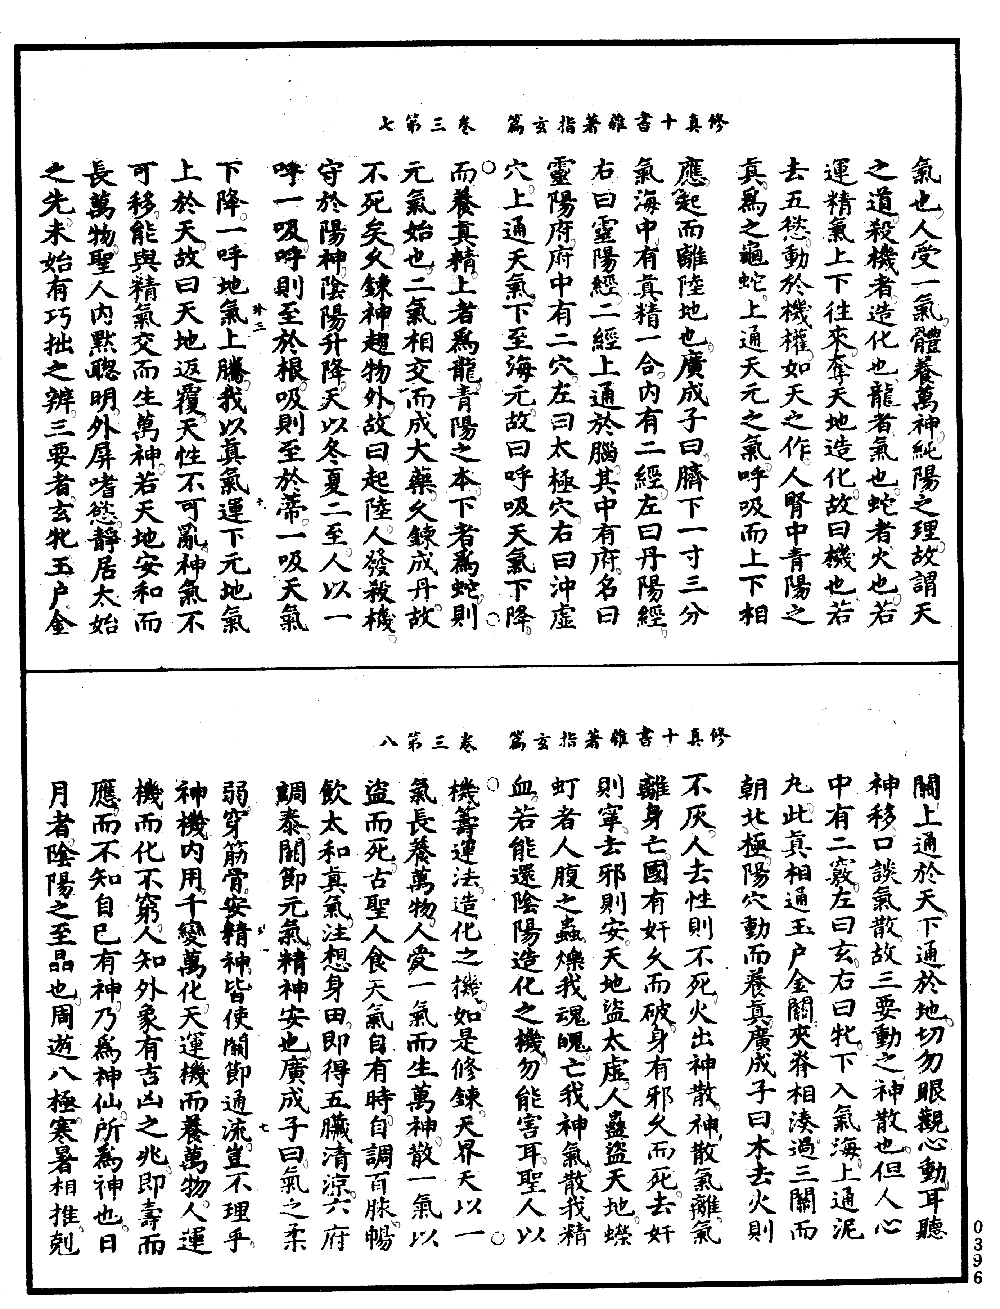 修真十書雜著指玄篇　卷三第七
氣也人受一氣體養萬神純陽之理故謂天
之道殺機者造化也龍者氣也蛇者火也若
運精氣上下往來奪天地造化故曰機也若
去五慾動於機權如天之作人腎中青陽之
真為之龜蛇上通天元之氣呼吸而上下相
應起而離陸地也廣成子曰臍下一寸三分
氣海中有真精一合內有二經左曰丹陽經
右曰靈陽經二經上通於腦其中有府名曰
靈陽府府中有二穴左曰太極穴右曰沖虛
穴上通天氣下至海元故曰呼吸天氣下降
而養真精上者為龍青陽之本下者為蛇則
元氣始也二氣相交而成大藥久鍊成丹故
不死矣久鍊神超物外故曰起陸人發殺機
守於陽神陰陽升降天以冬夏二至人以一
呼一吸呼則至於根吸則至於蒂一吸天氣
下降一呼地氣上騰我以真氣運下元地氣
上於天故曰天地返覆天性不可亂神氣不
可移能與精氣交而生萬神若天地安和而
長萬物聖人內默聰明外屏嗜慾靜居太始
之先未始有巧拙之辨三要者玄牝玉戶金
修真十書雜著指玄篇　卷三第八
關上通於天下通於地切勿眼觀心動耳聽
神移口談氣散故三要動之神散也但人心
中有二竅左曰玄右曰牝下入氣海上通泥
丸此真相通玉戶金關夾脊相湊過三關而
朝北極陽穴動而養真廣成子曰木去火則
不灰人去性則不死火出神散神散氣離氣
離身亡國有奸久而破身有邪久而死去奸
則寧去邪則安天地盜太虛人蟲盜天地蠑
虰者人腹之蟲爍我魂魄亡我神氣散我精
血若能還陰陽造化之機勿能害耳聖人以
機籌運法造化之機如是修鍊天界天以一
氣長養萬物人愛一氣而生萬神散一氣以
盜而死古聖人食天氣自有時自調百脉暢
飲太和真氣注想身田即得五臟清涼六府
調泰關節元氣精神安也廣成子曰氣之柔
弱穿筋骨安精神皆使關節通流豈不理乎
神機內用千變萬化天運機而養萬物人運
機而化不窮人知外象有吉凶之兆即壽而
應而不知自己有神乃為神仙所為神也日
月者陰陽之至晶也周遊八極寒暑相推剋
0396